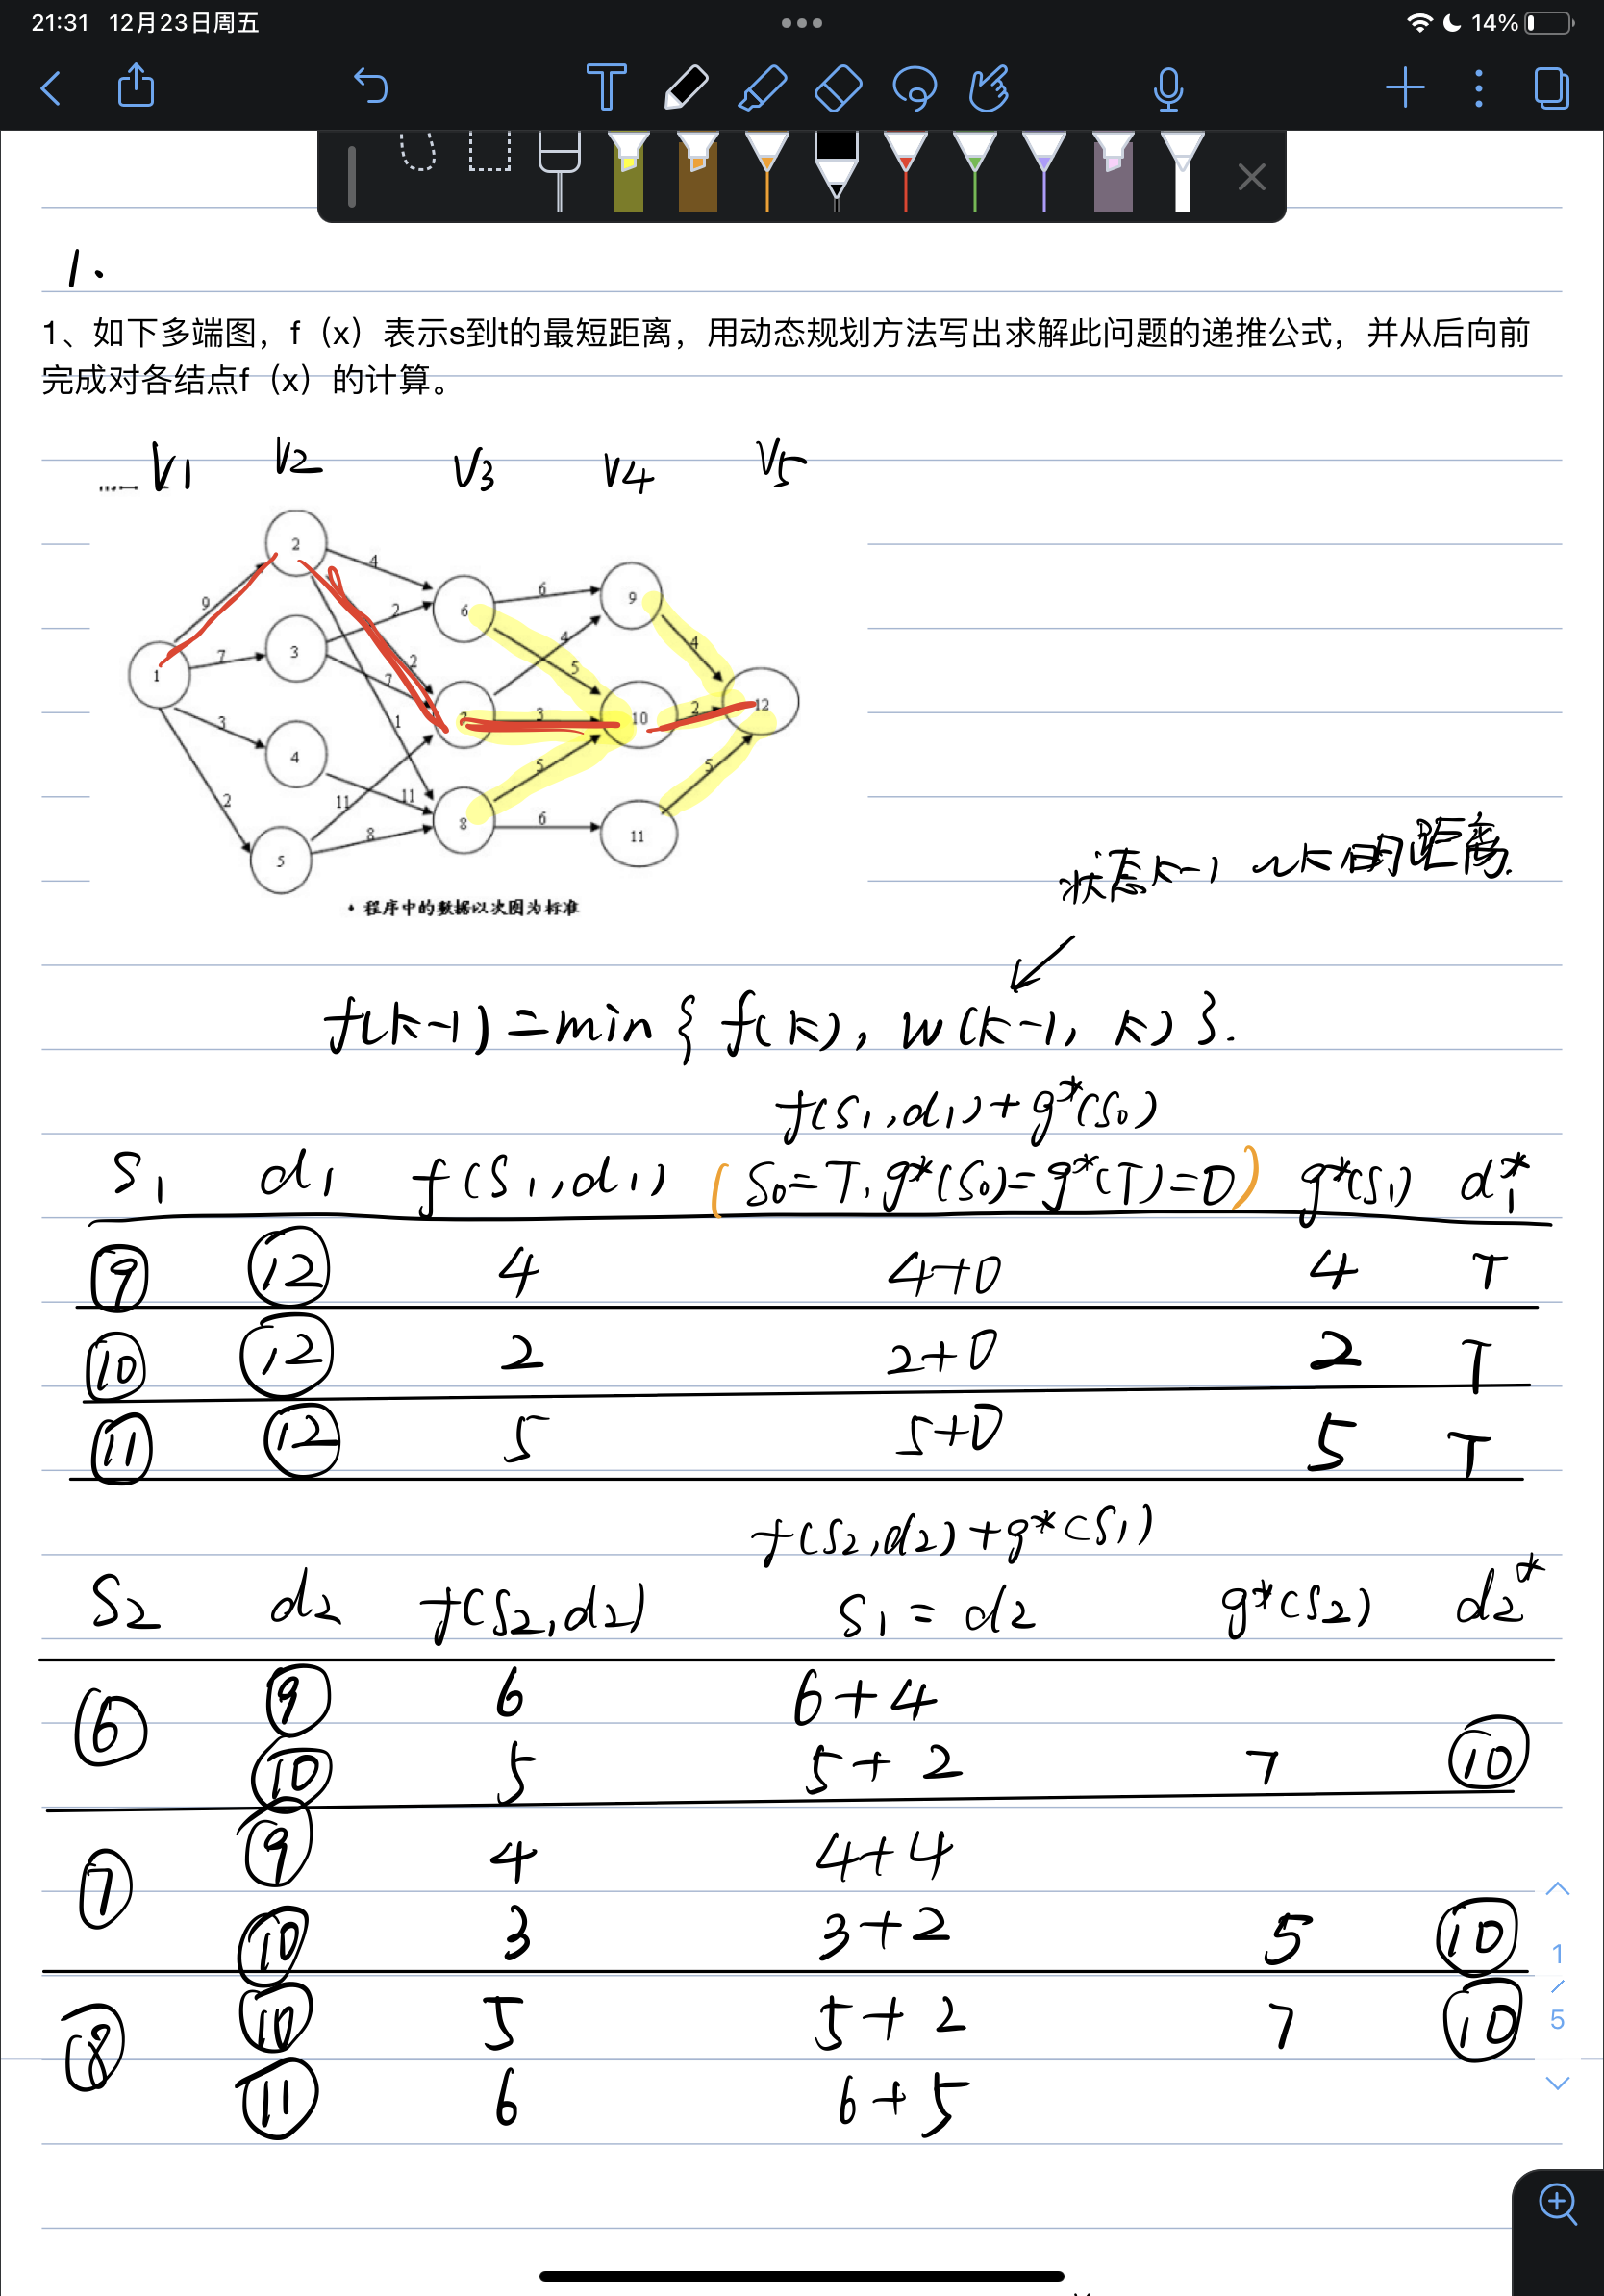 21:31 12月23日周五 14%
1.
1、如下多端图，f（x）表示s到t的最短距离，用动态规划方法写出求解此问题的递推公式，并从后向前
完成对各结点f（x）的计算。
V1 V2 V3 V4 V5
2
4
9
6
6
9
2
3
7
4
4
1
2
5
7
7
3
10
2
12
3
1
4
5
5
2
11
11
8
6
11
5
8
• 程序中的数据以次图为标准
状态k-1 ~ k 间的距离.
f(k-1) = min { f(k), w(k-1, k) }.
f(S1,d1)+g*(S0)
S1 d1 f(S1,d1) (S0=T, g*(S0)=g*(T)=0) g*(S1) d1*
⑨ ⑫ 4 4+0 4 T
⑩ ⑫ 2 2+0 2 T
⑪ ⑫ 5 5+0 5 T
f(S2,d2)+g*(S1)
S2 d2 f(S2,d2) S1=d2 g*(S2) d2*
⑥ ⑨ 6 6+4
⑩ 5 5+2 7 ⑩
⑦ ⑨ 4 4+4
⑩ 3 3+2 5 ⑩
⑧ ⑩ 5 5+2 7 ⑩
⑪ 6 6+5
1
/
5